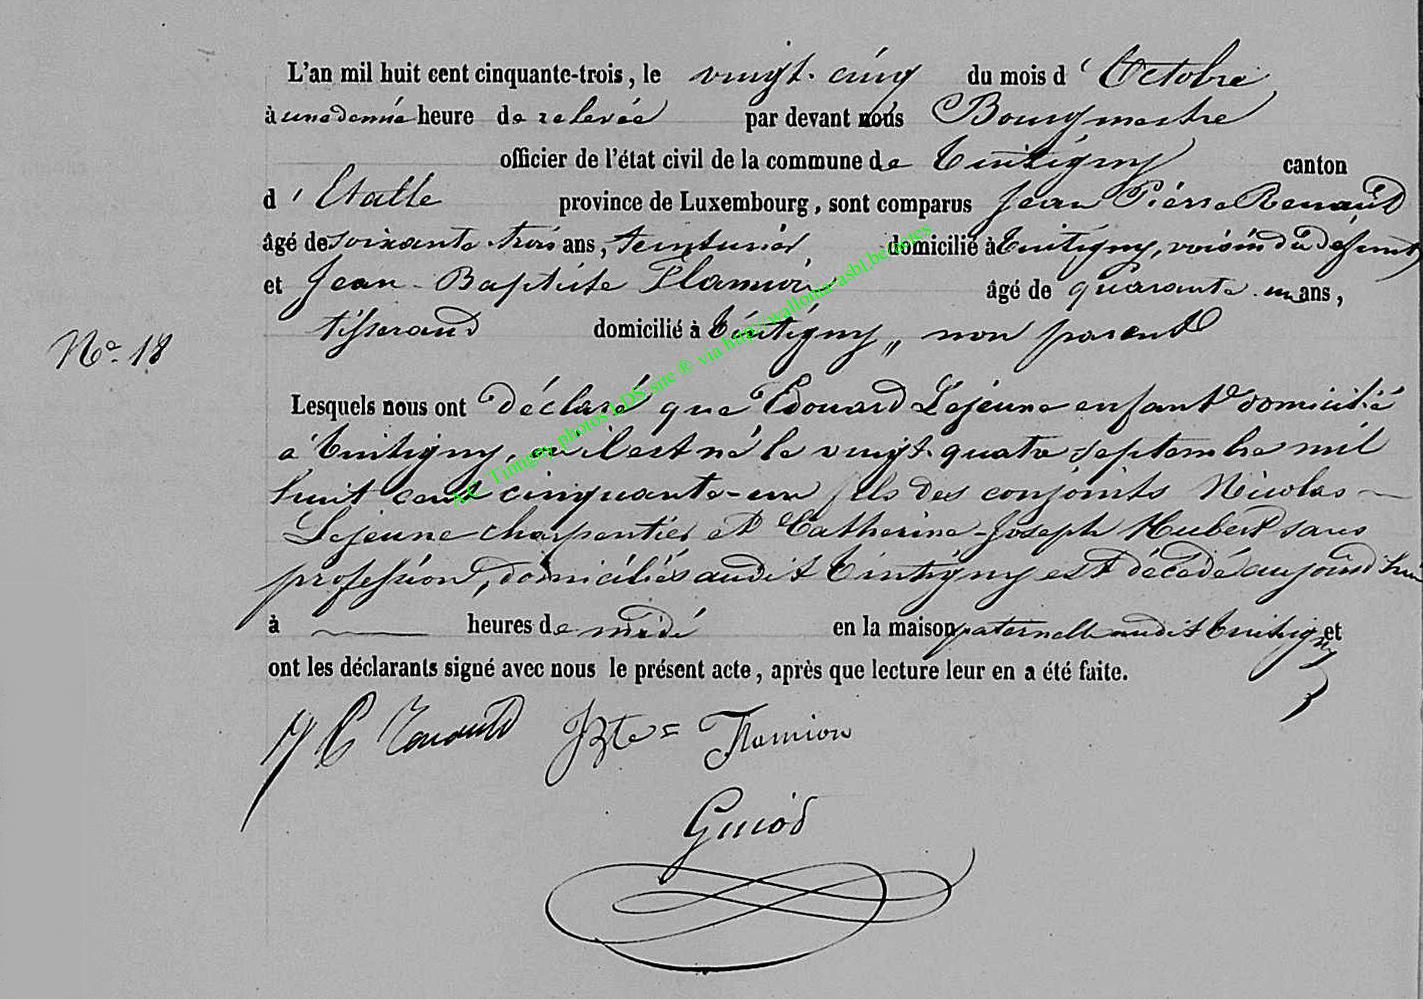 L'an mil huit cent cinquante-trois, le vingt-cinq du mois d'Octobre
à une demie heure de relevée par devant nous Bourgmestre
officier de l'état civil de la commune de Tintigny canton
d'Etalle province de Luxembourg, sont comparus Jean Pierre Renauld
âgé de soixante-trois ans, teinturier domicilié à Tintigny, voisin du défunt
et Jean-Baptiste Flamion âgé de quarante-un ans,
tisserand domicilié à Tintigny, non parent
N° 18
Lesquels nous ont déclaré que Edouard Lejeune enfant domicilié
à Tintigny, où il est né le vingt-quatre septembre mil
huit cent cinquante-un fils des conjoints Nicolas
Lejeune charpentier et Catherine-Joseph Hubert sans
profession, domiciliés audit Tintigny est décédé aujourd'hui
à heures de midi en la maison paternelle audit Tintigny et
ont les déclarants signé avec nous le présent acte, après que lecture leur en a été faite.
Renauld JBte= Flamion
Guiod
A.C. Tintigny photos LDS site ® via http://wallonia-asbl.be/actes